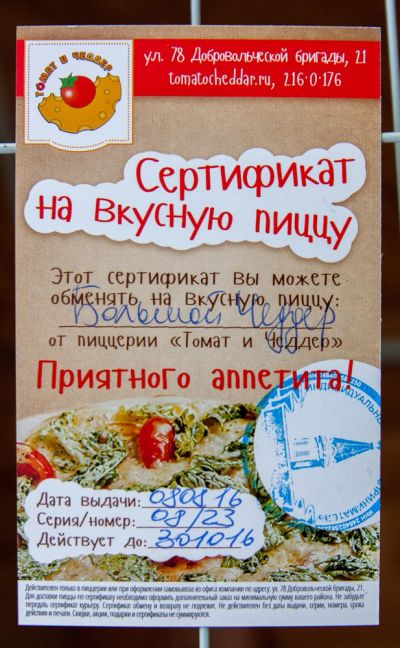 ТОМАТ И ЧЕДДЕР
ул. 78 Добровольческой бригады, 21
tomatocheddar.ru, 216-0-176
Сертификат
на вкусную пиццу
Этот сертификат вы можете
обменять на вкусную пиццу:
Большой Чеддер
от пиццерии «Томат и Чеддер»
Приятного аппетита!
ИНДИВИДУАЛЬНЫЙ
ПРЕДПРИНИМАТЕЛЬ
Дата выдачи: 080816
Серия/номер: 08/23
Действует до: 301016
Действителен только в пиццерии или при оформлении самовывоза из офиса компании по адресу: ул. 78 Добровольческой бригады, 21.
Для доставки пиццы по сертификату необходимо оформить дополнительный заказ на минимальную сумму вашего района. Не забудьте
передать сертификат курьеру. Сертификат обмену и возврату не подлежит. Не действителен без даты выдачи, серии, номера, срока
действия и печати. Скидки, акции, подарки и сертификаты не суммируются.